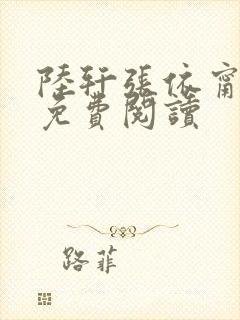 陸軒張依甯
免費閱讀
路菲